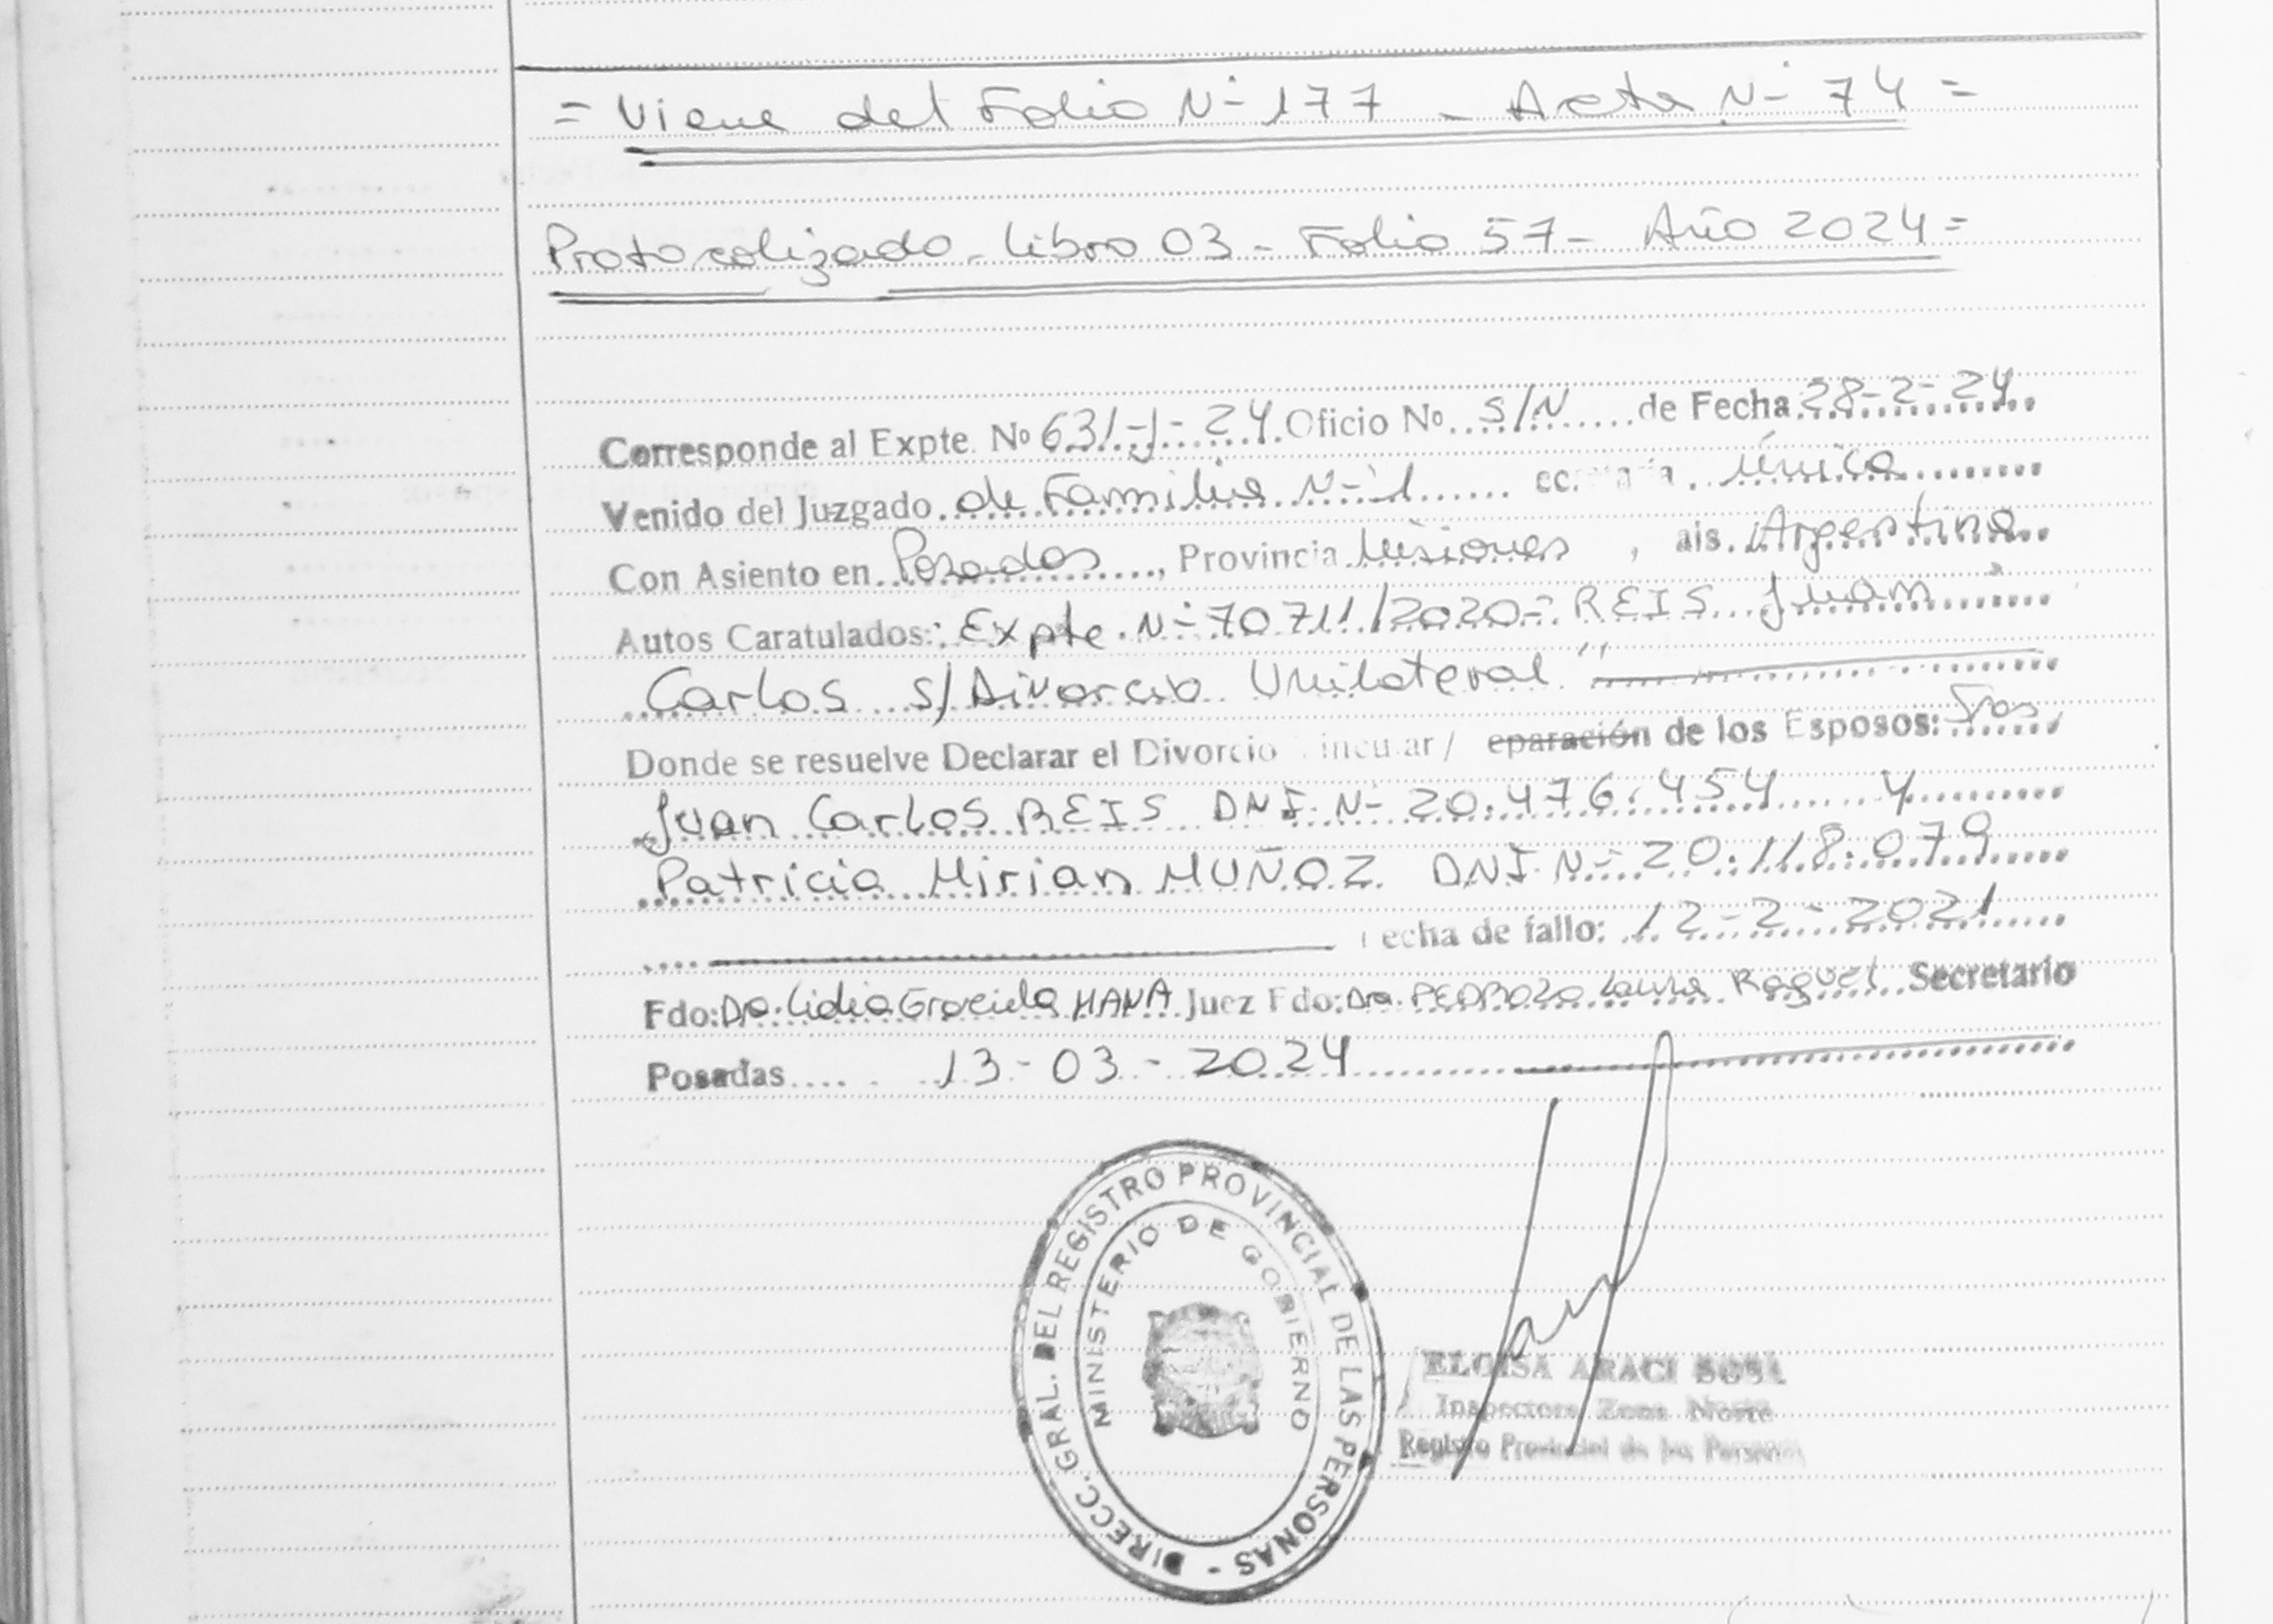 = Viene del Folio Nº 177 - Acta Nº 74 =
Protocolizado - Libro 03 - Folio 57 - Año 2024 =
Corresponde al Expte. Nº 631-J-24. Oficio Nº S/N de Fecha 28-2-24
Venido del Juzgado de Familia Nº 1 ec. única
Con Asiento en Posadas, Provincia Misiones, ais. Argentina
Autos Caratulados: Expte. Nº 70711/2020 - REIS Juan
Carlos s/ Divorcio Unilateral"
Donde se resuelve Declarar el Divorcio incular / eparación de los Esposos: Sres.
Juan Carlos REIS DNI Nº 20.476.454 y
Patricia Mirian MUÑOZ DNI Nº 20.118.079
echa de fallo: 12-2-2021
Fdo: Dra. Lidia Graciela Juez Fdo: Dra. PEDROZO Laura Raquel Secretario
Posadas 13-03-2024
DIRECC. GRAL. DEL REGISTRO PROVINCIAL DE LAS PERSONAS -
MINISTERIO DE GOBIERNO
ELOISA ARACI SOSA
Inspectora Zona Norte
Registro Provincial de las Personas